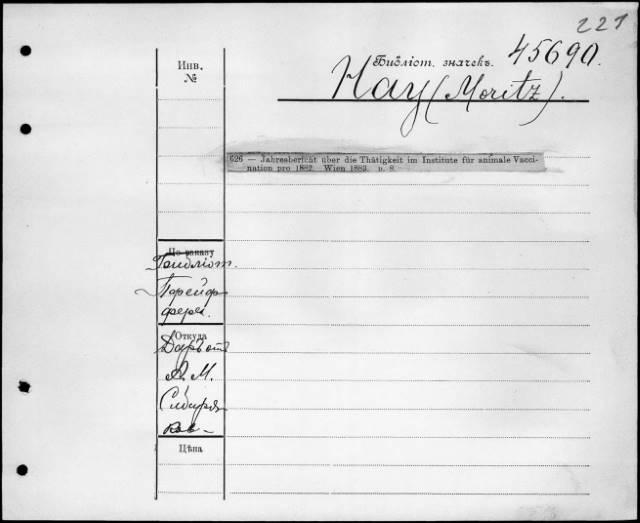 221
Библіот. значекъ. 45690.
Hay (Moritz).
Инв.
№
626 — Jahresbericht über die Thätigkeit im Institute für animale Vacci-
nation pro 1882. Wien 1883. u. 8.
По заказу
Библіот.
Отъ
Откуда
Даръ отъ
А. М.
Сибиря
кова
Цѣна